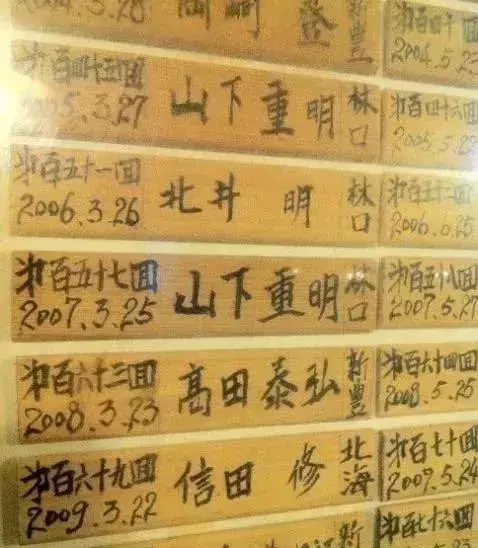 2004.3.28
新豊
㐧百四十回
2004.5.23
㐧百四十五回
2005.3.27
山下重明
林口
㐧百四十六回
2005.5.22
㐧百五十一回
2006.3.26
北井 明
林口
㐧百五十二回
㐧百五十七回
2007.3.25
山下重明
林口
㐧百五十八回
2007.5.27
㐧百六十三回
2008.3.23
高田泰弘
新豊
㐧百六十四回
2008.5.25
㐧百六十九回
2009.3.22
信田 修
北海
㐧百七十回
2009.5.24
新
㐧百七十六回